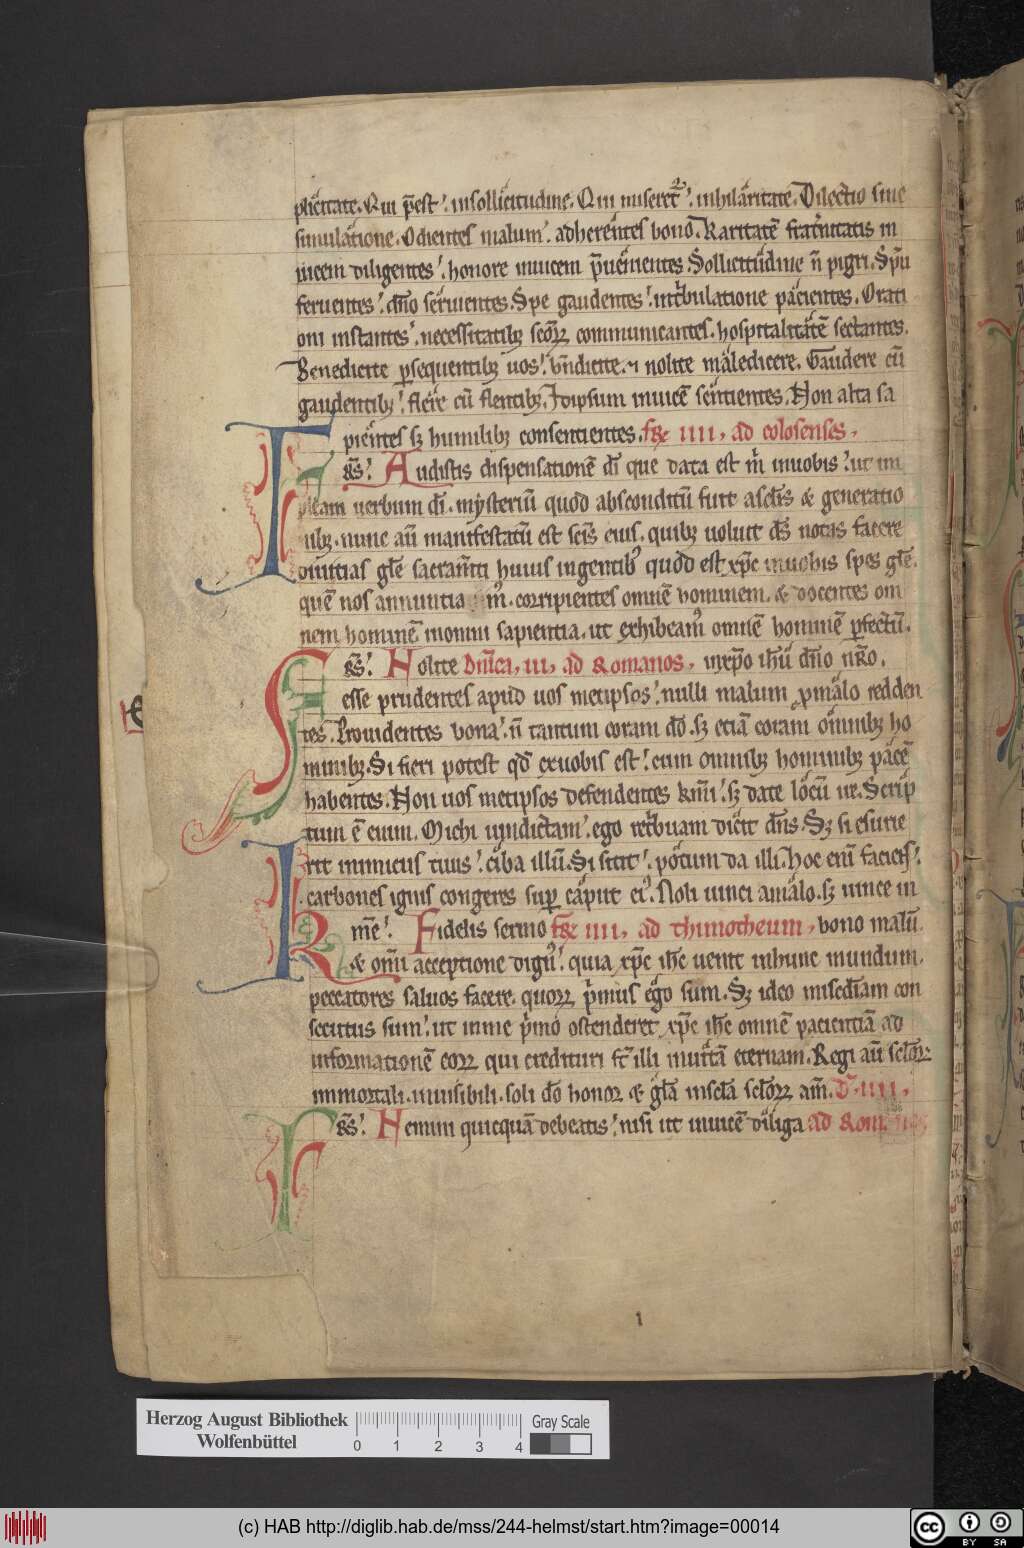 plicitate. Qui p̄est. insollicitudine. Qui miseretᷣ. inhilaritate. Dilectio sine
simulatione. Odientes malum. adherentes bono. Karitatē frat̄nitatis in
uicem diligentes. honore inuicem p̄uenientes. Sollicitudine n̄ pigri. Sp̄u
feruentes. dn̄o seruientes. Spe gaudentes. intⁱbulatione pacientes. Orati
oni instantes. necessitatibꝫ sc̄oꝝ communicantes. hospitalitatē sectantes.
Benedicite ꝑsequentibꝫ uos. bn̄dicite. ⁊ nolite maledicere. Gaudere cū
gaudentibꝫ. flere cū flentibꝫ. Idipsum inuicē sentientes. Non alta sa
pientes sꝫ humilibꝫ consentientes. fr̄ IIII, ad colosenses,
FRS. Audistis dispensationē dī que data est m̄ inuobis. ut im
pleam uerbum dī. mysteriū quod absconditū fuit asclīs & generatio
nibꝫ. nunc aū manifestatū est scīs eius. quibꝫ uoluit ds̄ notas facere
diuitias glē sacram̄ti huius ingentibꝰ quod est xp̄c inuobis spes glē.
quē nos annuntia mꝰ. corripientes omnē hominem. & docentes om
nem hominē inomni sapientia. ut exhibeamꝰ omnē hominē ꝑfectū.
FRS. Nolite Dn̄ica, III, ad Romanos, inxp̄o ih̄u dn̄o nr̄o.
esse prudentes apud uos metipsos. nulli malum ꝓmalo redden
tes. Prouidentes bona. n̄ tantum coram dō. sꝫ etiā coram omnibꝫ ho
minibꝫ. Si fieri potest qd̄ exuobis est. cum omnibꝫ hominibꝫ pacē
habentes. Non uos metipsos defendentes km̄i. sꝫ date locū ire. Scrip
tum ē enim. Michi uindictam. ego retⁱbuam dicit dn̄s. Sꝫ si esurie
rit inimicus tuus. ciba illū. Si sitit. potum da illi. hoc enī faciens.
carbones ignis congeres sup̄ caput eiꝰ. Noli uinci amalo. sꝫ uince in
KRMĒ. Fidelis sermo fr̄ IIII, ad thimotheum, bono malū.
& om̄i acceptione dignꝰ. quia xp̄c ih̄c uenit inhunc mundum.
peccatores saluos facere. quoꝝ pⁱmus ego sum. Sꝫ ideo misc̄diam con
secutus sum. ut inme pⁱmo ostenderet xp̄c ih̄c omnē pacientiā ad
informationē eoꝝ qui credituri st̄ illi inuitā eternam. Regi aū scl̄oꝝ
immortali. inuisibili. soli dō honor & glā inscl̄a scl̄oꝝ am̄. D̄. IIII,
FRS. Nemini quicquā debeatis. nisi ut inuicē diliga ad Romanos
1
Herzog August Bibliothek
Wolfenbüttel
0 1 2 3 4
Gray Scale
(c) HAB http://diglib.hab.de/mss/244-helmst/start.htm?image=00014
cc BY SA